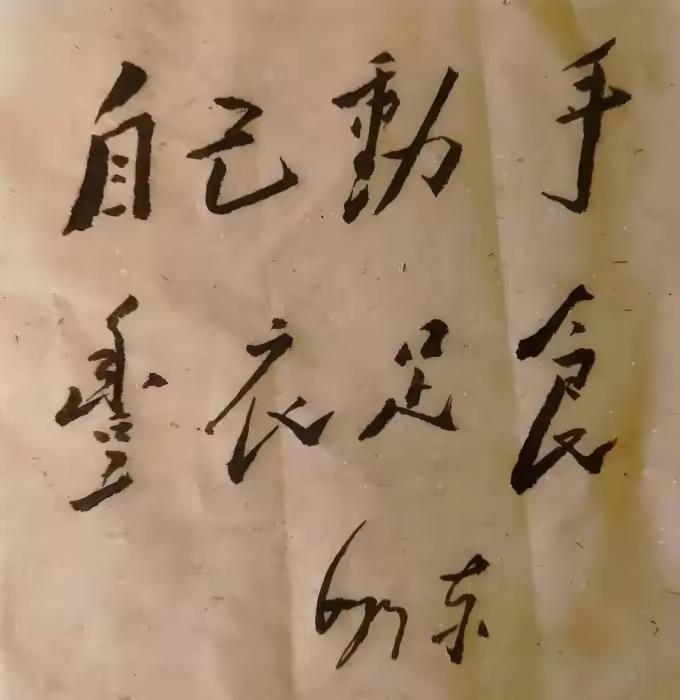 自己動手
豐衣足食
东